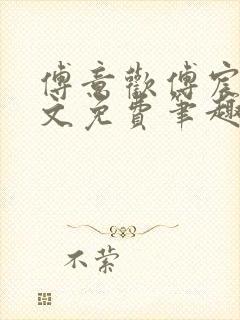 傅意歡傅宸
文免費筆趣
不縈